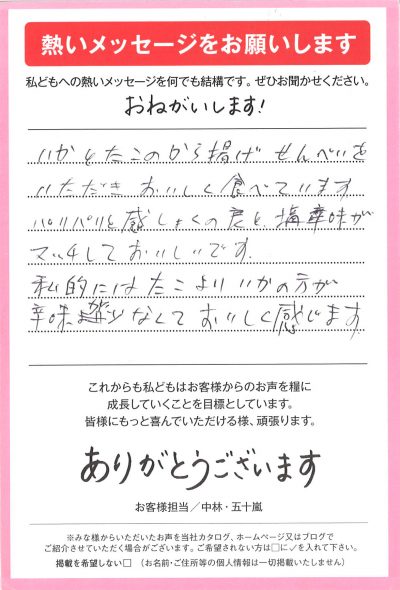 熱いメッセージをお願いします
私どもへの熱いメッセージを何でも結構です。ぜひお聞かせください。
おねがいします!
いかとたこのから揚げせんべいを
いただきおいしく食べています
パリパリと感しょくの良と塩辛味が
マッチしておいしいです。
私的にはたこよりいかの方が
辛味が少なくておいしく感じます
これからも私どもはお客様からのお声を糧に
成長していくことを目標としています。
皆様にもっと喜んでいただける様、頑張ります。
ありがとうございます
お客様担当/中林・五十嵐
※みな様からいただいたお声を当社カタログ、ホームページ又はブログで
ご紹介させていただく場合がございます。ご希望されない方は□に✓を入れて下さい。
掲載を希望しない□ (お名前・ご住所等の個人情報は一切掲載いたしません)